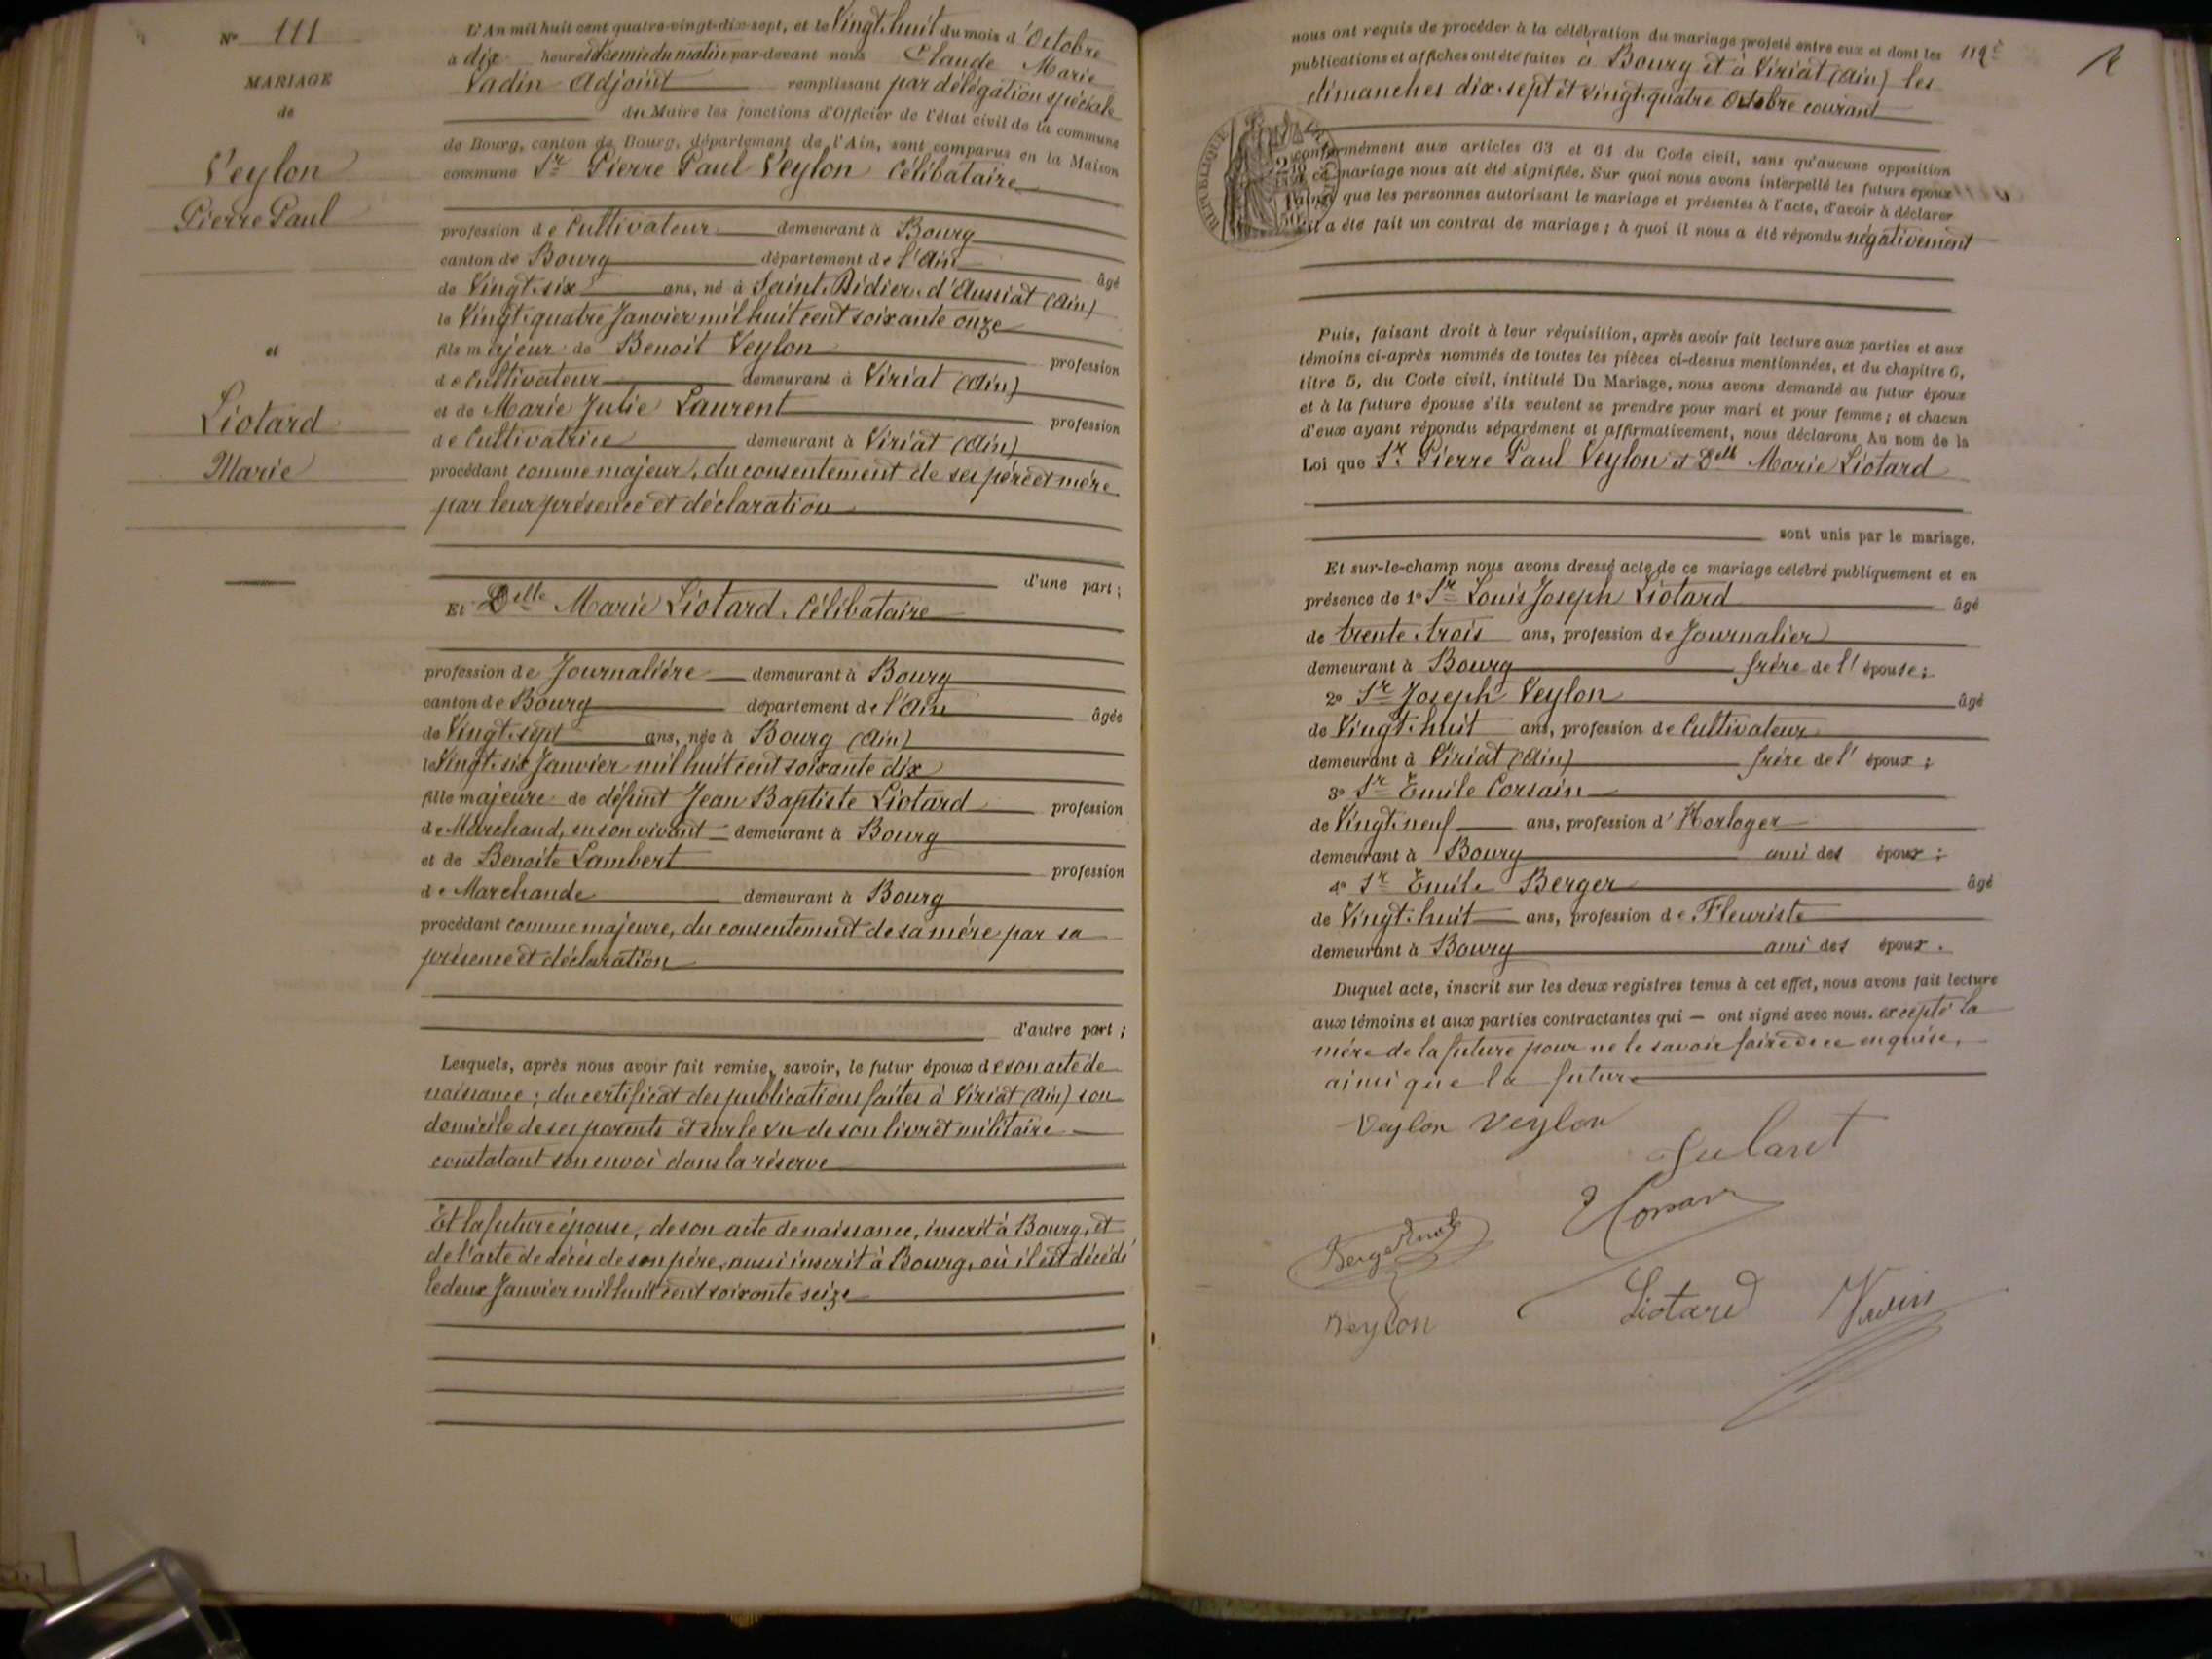 N° 111
MARIAGE
de
Veylon
Pierre Paul
et
Liotard
Marie
L'An mil huit cent quatre-vingt-dix-sept, et le Vingt-huit du mois d'Octobre
à dix heures et demie du matin par-devant nous Claude Marie
Vadin Adjoint remplissant par délégation spéciale
du Maire les fonctions d'Officier de l'état civil de la commune
de Bourg, canton de Bourg, département de l'Ain, sont comparus en la Maison
commune Sr Pierre Paul Veylon Célibataire
profession de Cultivateur demeurant à Bourg
canton de Bourg département de l'Ain âgé
de Vingt-six ans, né à Saint-Didier-d'Aussiat (Ain)
le Vingt-quatre Janvier mil huit cent soixante onze
fils majeur de Benoit Veylon profession
de Cultivateur demeurant à Viriat (Ain)
et de Marie Julie Laurent profession
de Cultivatrice demeurant à Viriat (Ain)
procédant comme majeur, du consentement de ses père et mère
par leur présence et déclaration
d'une part ;
Et Delle Marie Liotard, Célibataire
profession de Journalière demeurant à Bourg
canton de Bourg département de l'Ain âgée
de Vingt-sept ans, née à Bourg (Ain)
le Vingt-six Janvier mil huit cent soixante dix
fille majeure de défunt Jean Baptiste Liotard profession
de Marchand, en son vivant demeurant à Bourg
et de Benoite Lambert profession
de Marchande demeurant à Bourg
procédant comme majeure, du consentement de sa mère par sa
présence et déclaration
d'autre part ;
Lesquels, après nous avoir fait remise, savoir, le futur époux de son acte de
naissance ; du certificat des publications faites à Viriat (Ain) son
domicile de ses parents et sur le vu de son livret militaire
constatant son envoi dans la réserve
Et la future épouse, de son acte de naissance, inscrit à Bourg, et
de l'acte de décès de son père, aussi inscrit à Bourg, où il est décédé
le deux Janvier mil huit cent soixante seize
112e
nous ont requis de procéder à la célébration du mariage projeté entre eux et dont les
publications et affiches ont été faites à Bourg et à Viriat (Ain) les
dimanches dix-sept et vingt-quatre Octobre courant
conformément aux articles 63 et 64 du Code civil, sans qu'aucune opposition
à ce mariage nous ait été signifiée. Sur quoi nous avons interpellé les futurs époux
ainsi que les personnes autorisant le mariage et présentes à l'acte, d'avoir à déclarer
s'il a été fait un contrat de mariage ; à quoi il nous a été répondu négativement
Puis, faisant droit à leur réquisition, après avoir fait lecture aux parties et aux
témoins ci-après nommés de toutes les pièces ci-dessus mentionnées, et du chapitre 6,
titre 5, du Code civil, intitulé Du Mariage, nous avons demandé au futur époux
et à la future épouse s'ils veulent se prendre pour mari et pour femme ; et chacun
d'eux ayant répondu séparément et affirmativement, nous déclarons Au nom de la
Loi que Sr Pierre Paul Veylon et Delle Marie Liotard
sont unis par le mariage.
Et sur-le-champ nous avons dressé acte de ce mariage célébré publiquement et en
présence de 1° Sr Louis Joseph Liotard âgé
de trente-trois ans, profession de Journalier
demeurant à Bourg frère de l'épouse ;
2° Sr Joseph Veylon âgé
de Vingt-huit ans, profession de Cultivateur
demeurant à Viriat (Ain) frère de l'époux ;
3° Sr Emile Corsain
de Vingt-neuf ans, profession d'Horloger
demeurant à Bourg ami des époux ;
4° Sr Emile Berger âgé
de Vingt-huit ans, profession de Fleuriste
demeurant à Bourg ami des époux.
Duquel acte, inscrit sur les deux registres tenus à cet effet, nous avons fait lecture
aux témoins et aux parties contractantes qui — ont signé avec nous. excepté la
mère de la future pour ne le savoir faire de ce enquise,
ainsi que la future
Veylon Veylon
Veylon
Liotard